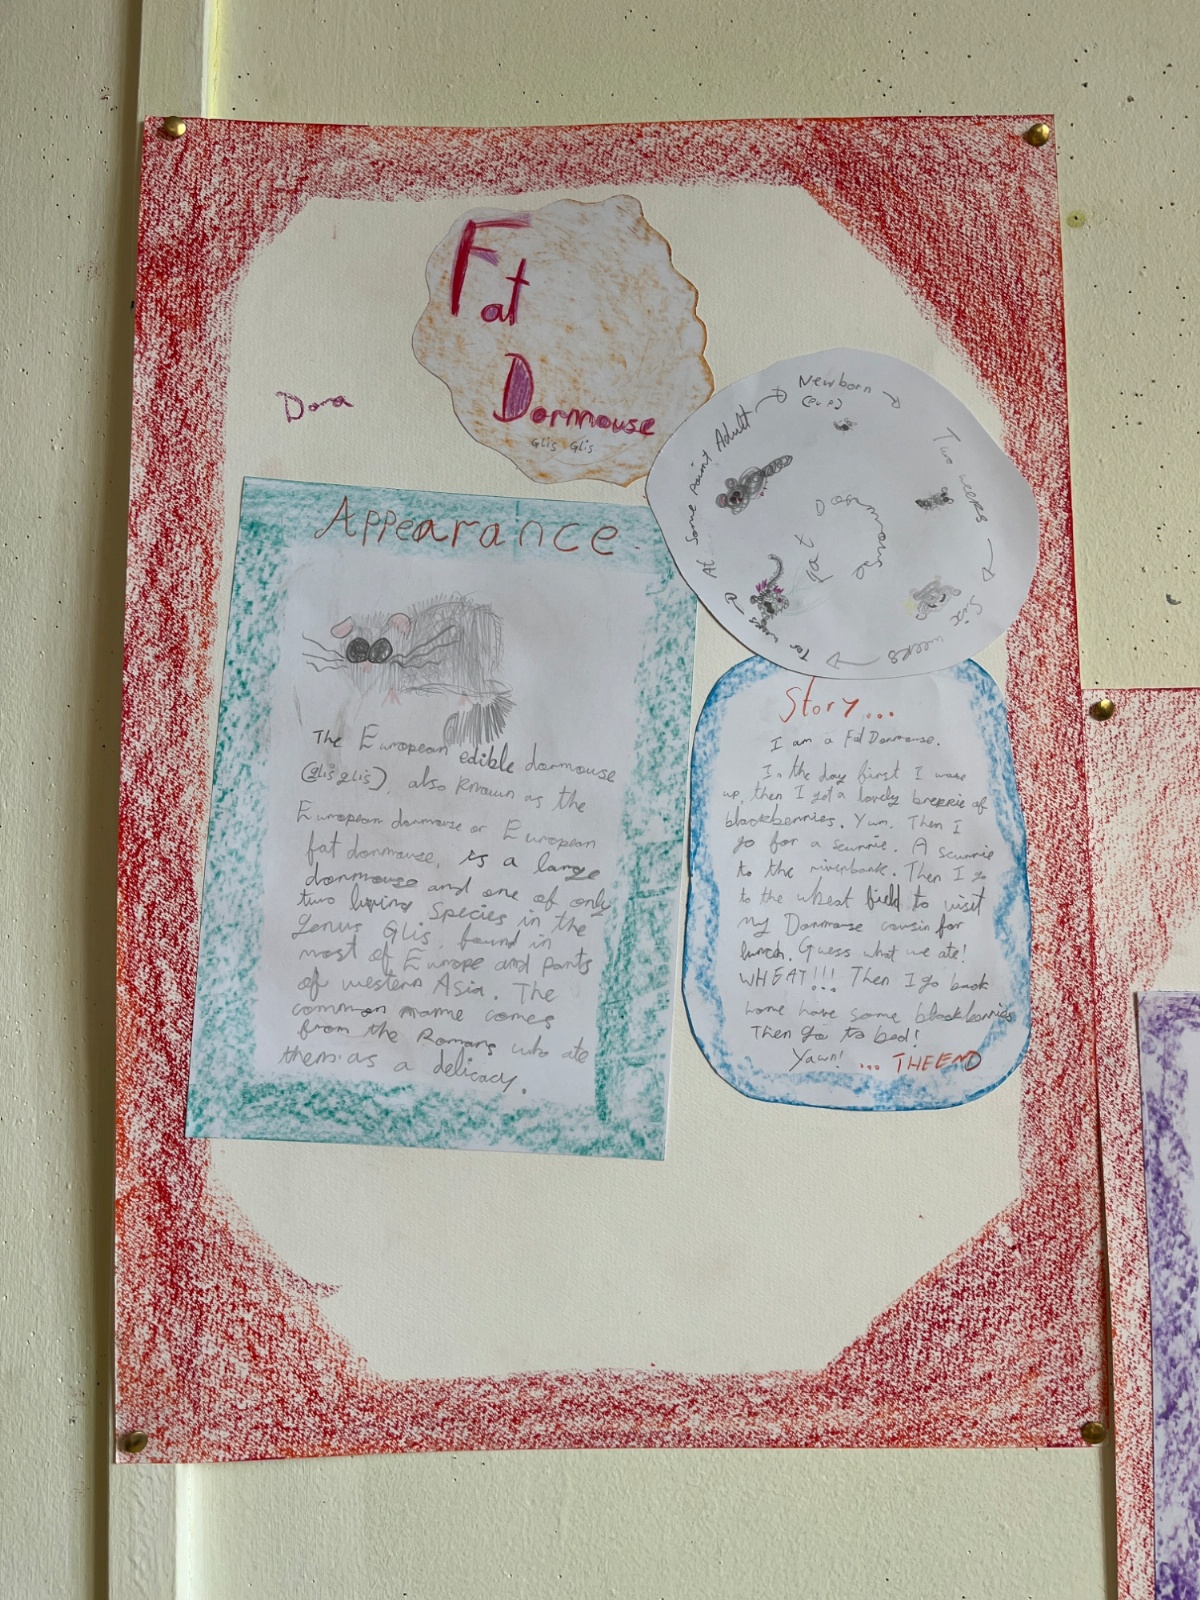 Fat
Dormouse
Glis Glis
Dora
Appearance
The European edible dormouse
(glis glis), also known as the
European dormouse or European
fat dormouse, is a large
dormouse and one of only
two living species in the
genus Glis, found in
most of Europe and parts
of western Asia. The
common name comes
from the Romans who ate
them as a delicacy.
Newborn
(Pup)
Two weeks
Six weeks
Ten weeks
At Some Point Adult
Fat Dormouse
Story...
I am a Fat Dormouse.
In the day first I wake
up, then I get a lovely brekkie of
blackberries. Yum. Then I
go for a scurrie. A scurrie
to the riverbank. Then I go
to the wheat field to visit
my Dormouse cousin for
lunch. Guess what we ate!
WHEAT!!! Then I go back
home have some blackberries
Then go to bed!
Yawn! ... THE END